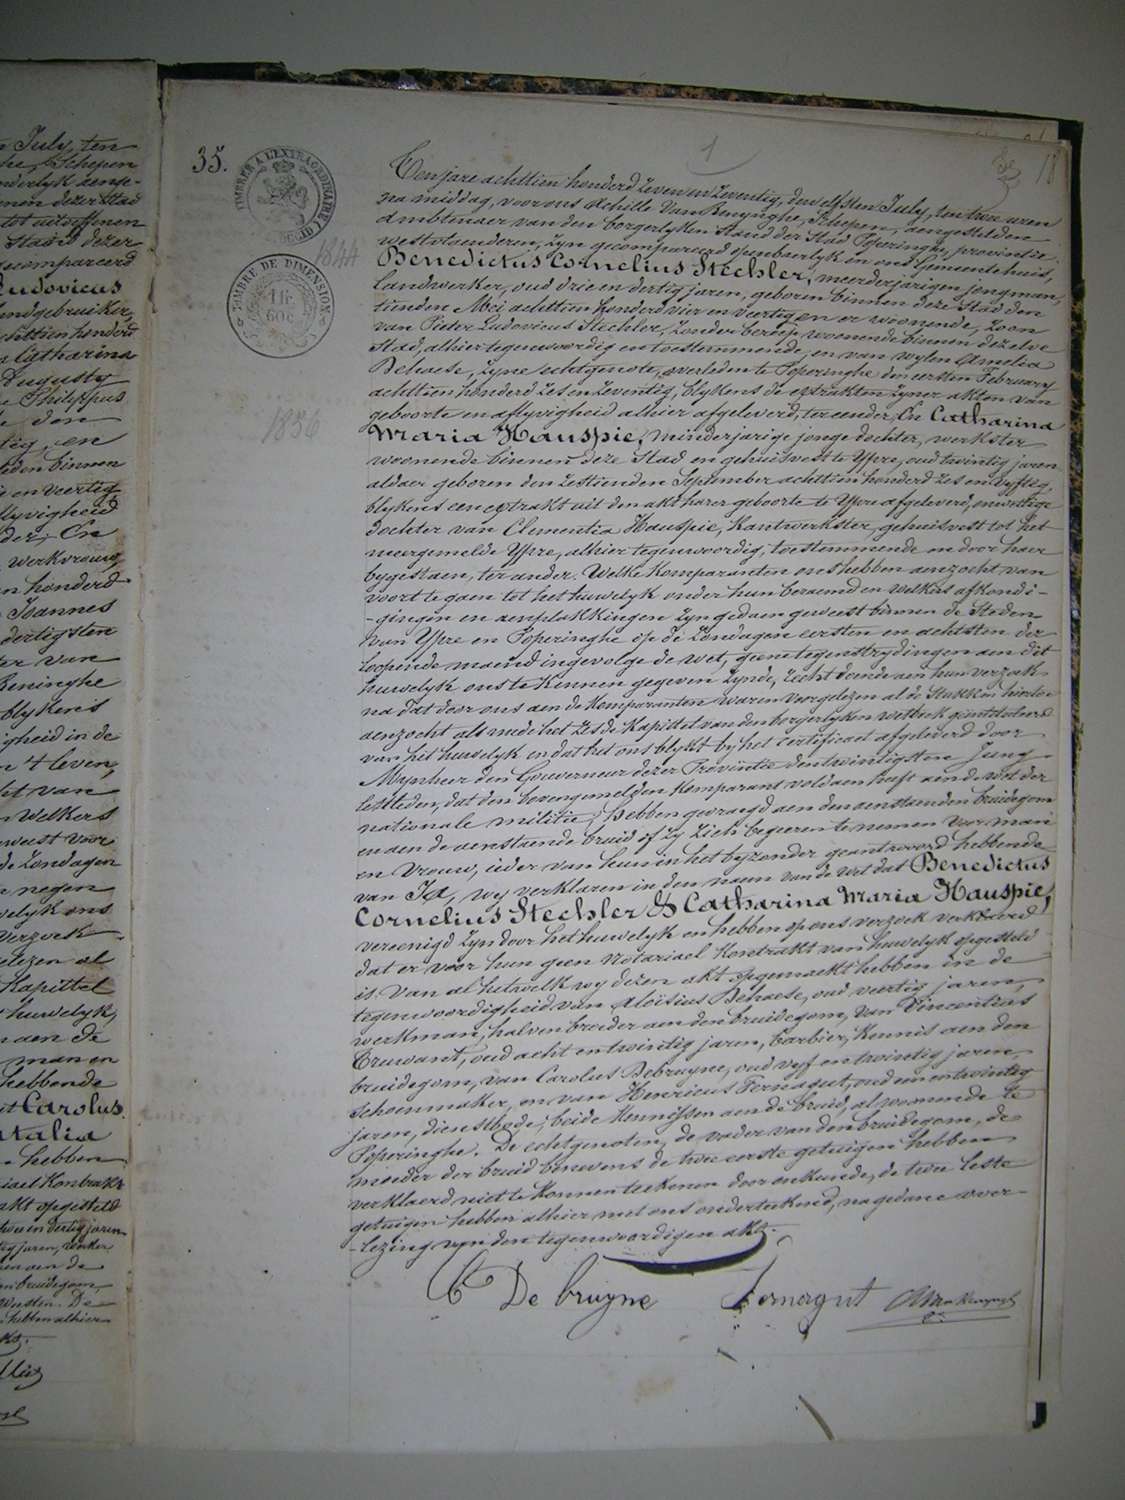 35.
1
18
TIMBRER A L'EXTRAORDINAIRE
1844
TIMBRE DE DIMENSION
1836
Ten jare achttien honderd zeven en zeventig, den elfsten July, ten twee uren
na middag, voor ons Achille Van Renynghe, Schepen, aengestelden
ambtenaer van den borgerlyken Stand der Stad Poperinghe, provintie
westvlaenderen, zyn gecompareerd openbaerlyk in ons Gemeentehuis,
Benedictus Cornelius Stechler, meerderjarigen jongman,
landwerker, oud drie en dertig jaren, geboren binnen deze Stad den
tienden Mei achttien honderd vier en veertig en er woonende, zoon
van Pieter Ludovicus Stechler, zonder beroep, woonende binnen dezelve
Stad, alhier tegenwoordig en toestemmende, en van wylen Amelia
Behaese, zyne echtgenote, overleden te Poperinghe den eersten February
achttien honderd zes en zeventig, blykens de extrakten zyner akten van
geboorte en aflyvigheid alhier afgeleverd, ter eender; En Catharina
Maria Hauspie, minderjarige jonge dochter, werkster
woonende binnen deze Stad en gehuisvest te Ypre, oud twintig jaren
aldaer geboren den zestienden September achttien honderd zes en vyftig,
blykens een extrakt uit den akt harer geboorte te Ypre afgeleverd, onwettige
dochter van Clementia Hauspie, Kantwerkster, gehuisvest tot het
meergemelde Ypre, alhier tegenwoordig, toestemmende en door haer
bygestaen, ter ander. Welke Komparanten ons hebben aenzocht van
voort te gaen tot het huwelyk onder hun beraemd en welkers afkondi-
-gingen en aenplakkingen zyn gedaen geweest binnen de Steden
van Ypre en Poperinghe op de zondagen eersten en achtsten der
loopende maend ingevolge de wet, geene tegenstrydingen aen dit
huwelyk ons te kennen gegeven zynde, recht doende aen hun verzoek
na dat door ons aen de Komparanten waren voorgelezen al de Stukken hiertoe
aenzocht als mede het zesde Kapittel van den borgerlyken wetboek geintituleerd
van het huwelyk en dat het ons blykt by het certificaet afgeleverd door
Mynheer den Gouverneur dezer Provintie den twintigsten Juny
lestleden, dat den bovengemelden Komparant voldaen heeft aen de wet der
nationale militie; hebben gevraegd aen den aenstaenden bruidegom
en aen de aenstaende bruid of zy zich begeeren te nemen voor man
en vrouw, ieder van hun in het byzonder geantwoord hebbende
van Ja, wy verklaren in den naem van de wet dat Benedictus
Cornelius Stechler & Catharina Maria Hauspie,
vereenigd zyn door het huwelyk en hebben op ons verzoek verklaerd
dat er voor hun geen Notariael Kontrakt van huwelyk opgesteld
is. Van al hetwelk wy dezen akt opgemaekt hebben in de
tegenwoordigheid van Aloïsius Behaese, oud veertig jaren,
werkman, halven broeder aen den bruidegom, van Vincentius
Truwant, oud acht en twintig jaren, barbier, Kennis aen den
bruidegom, van Carolus Debruyne, oud vyf en twintig jaren,
Schoenmaker, en van Henricus Fernagut, oud een en twintig
jaren, dienstbode; beide Kennissen aen de bruid, al woonende te
Poperinghe. De echtgenoten, de vader van den bruidegom, de
moeder der bruid benevens de twee eerste getuigen hebben
verklaerd niet te konnen teekenen door onkunde, de twee leste
getuigen hebben alhier met ons onderteekend, na gedane voor-
-lezing van den tegenwoordigen akt.
De bruyne Fernagut